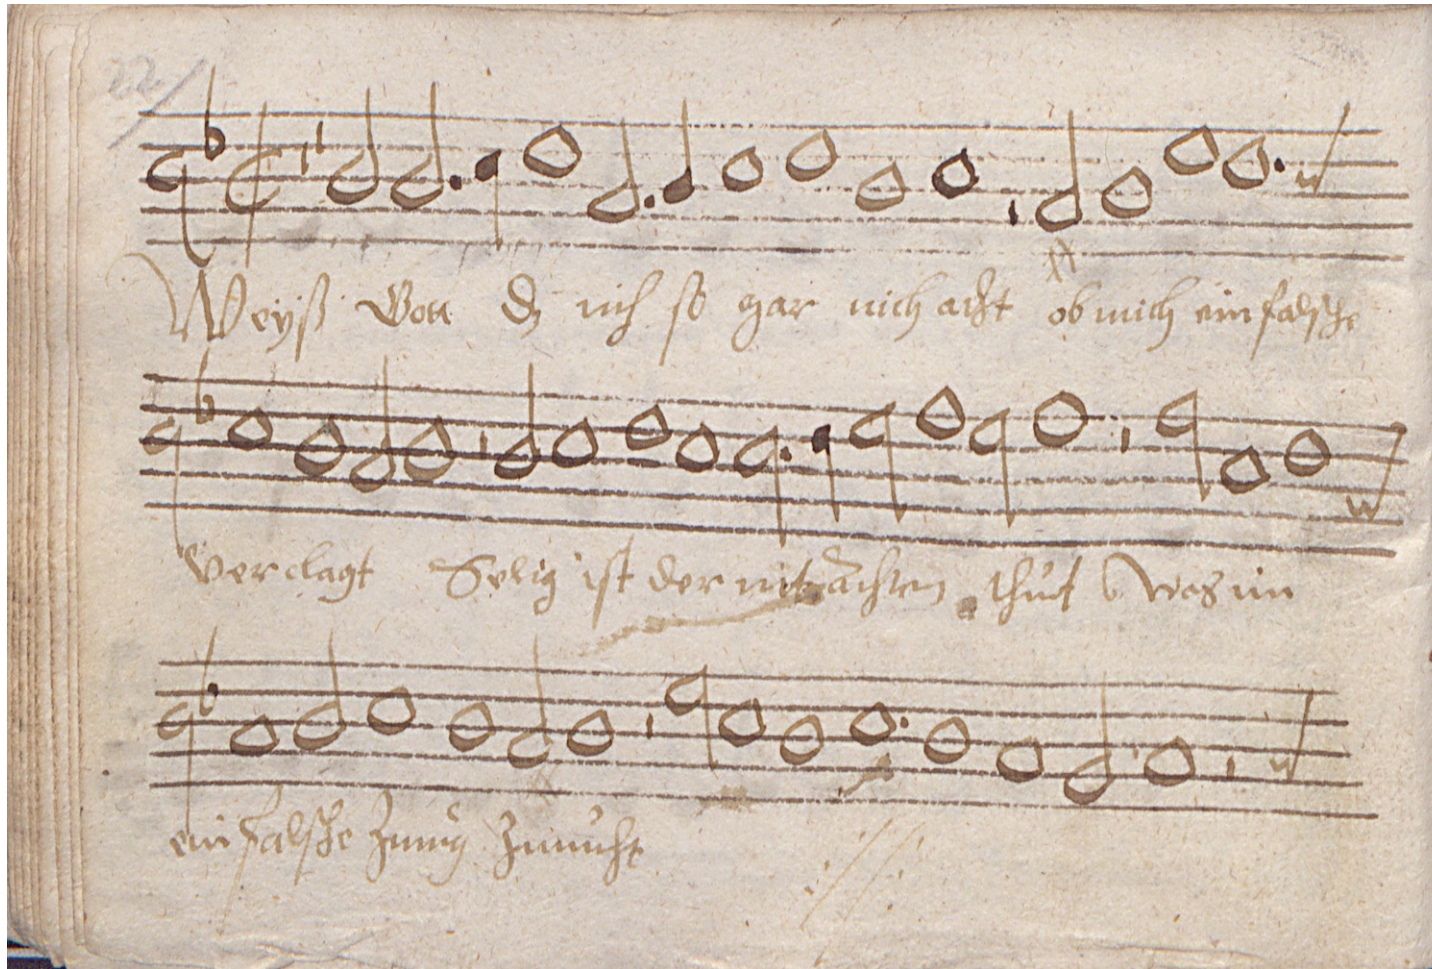 22
Weyß Gott dz ich so gar nich acht ob mich ein falsche
ver clagt Selig ist der achten thut was im
ein falsche Zung